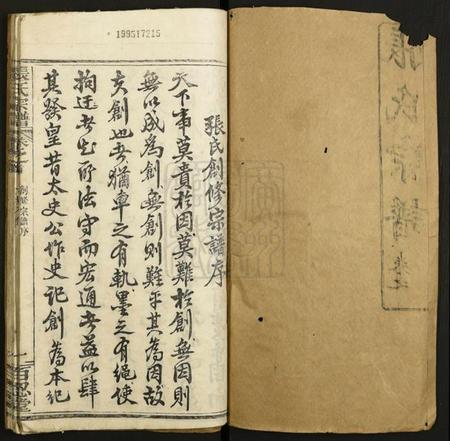 張氏宗譜 卷之
199517215
張氏創修宗譜序
天下事莫貴於因莫難於創無因則
無以成為創無創則難乎其為因故
夫創也者猶車之有軌墨之有繩使
拘迂者有所法守而宏通者益以肆
其發皇昔太史公作史記創為本紀
張氏宗譜
創修宗譜序
一
百忍堂